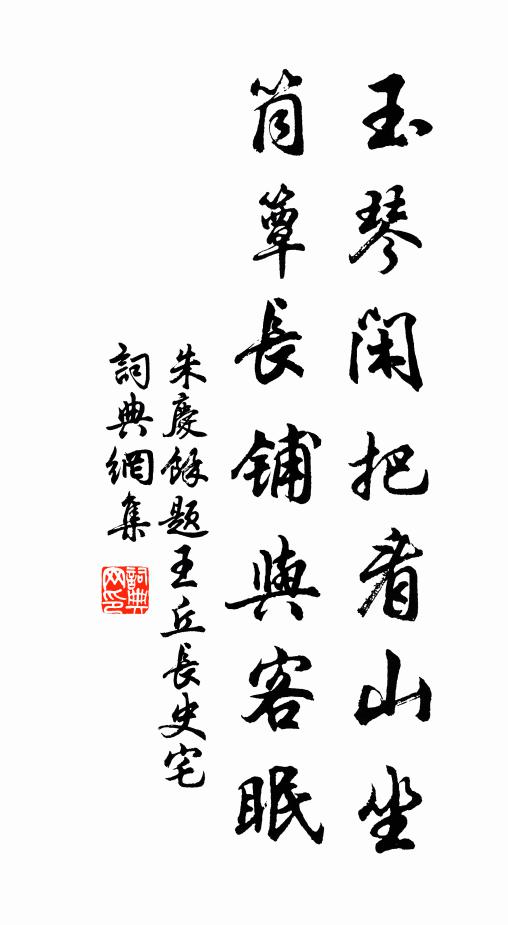 玉琴閑把看山坐
筒簟長鋪與客眠
朱慶餘題王丘長史宅
詞典網集
詞典网印